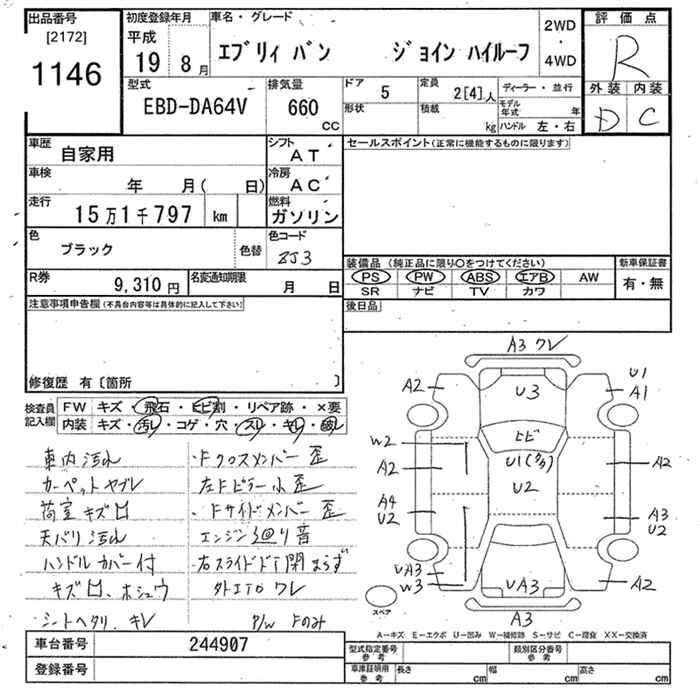 出品番号 初度登録年月 車名・グレード 評価点
[2172] 平成 エブリィ バン ジョイン ハイルーフ 2WD・4WD R
1146 19年 8月
型式 排気量 ドア 5 定員 2[4]人 ディーラー・並行 外装 内装
EBD-DA64V 660 CC 形状 積載 kg モデル年式 年 D C
ハンドル 左・右
車歴 自家用 シフト AT セールスポイント(正常に機能するものに限ります)
車検 年 月(日) 冷房 AC
走行 15万1千797 km 燃料 ガソリン
色 ブラック 色替 色コード ZJ3
装備品(純正品に限り○をつけてください) 新車保証書
R券 9,310円 名変通知期限 月 日 PS PW ABS エアB AW 有・無
SR ナビ TV カワ
注意事項申告欄(不具合内容等は具体的に記入して下さい) 後日品
修復歴 有〔箇所 〕
検査員記入欄 FW キズ・飛石・ヒビ割・リペア跡・×要
内装 キズ・汚レ・コゲ・穴・スレ・キレ・破レ
車内 汚れ ・Fクロスメンバー 歪
カーペットヤブレ 左Fピラー 小歪
荷室 キズ凹 ・Fサイドメンバー 歪
天バリ 汚れ エンジン廻り音
ハンドルカバー付 右スライドドア閉まらず
キズ凹、ホシュウ 外エアロ ワレ
シートヘタリ、キレ P/W Fのみ
A3 ワレ
A2 U3 U1
A1
ヒビ
W2 U1
A2 U2 A2
A4 A3
U2 U2
UA3 UA3 A2
W3
スペア A3
A―キズ E―エクボ U―凹み W―補修跡 S―サビ C―腐食 XX―交換済
車台番号 244907 型式指定番号 参考 類別区分番号 参考
登録番号 車庫証明用 参考 長さ cm 幅 cm 高さ cm